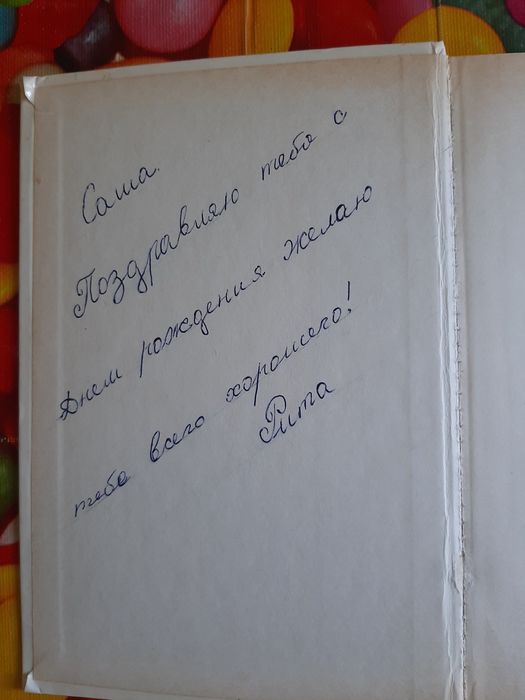 Саша.
Поздравляю тебя с
Днем рождения желаю
тебе всего хорошего!
Рита